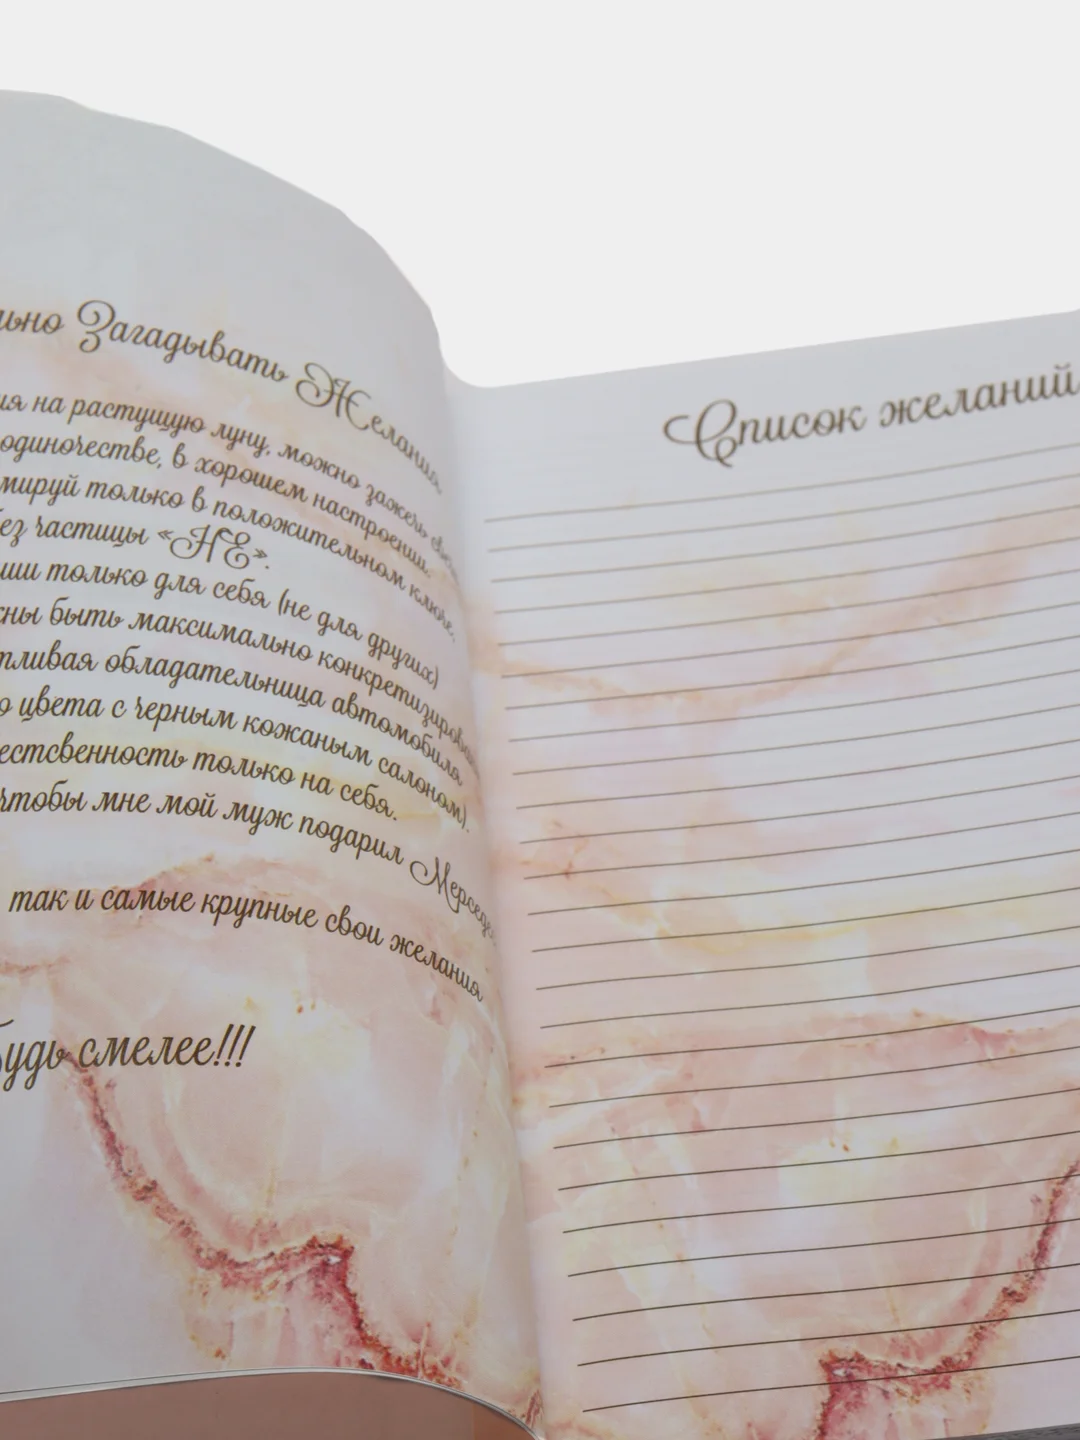 Загадывать Желания
на растущую луну, можно зажечь
одиночестве, в хорошем настроении.
только в положительном ключе,
частицы «НЕ».
только для себя (не для других)
быть максимально
обладательница автомобиля
цвета с черным кожаным салоном).
только на себя.
чтобы мне мой муж подарил
так и самые крупные свои желания
будь смелее!!!
Список желаний